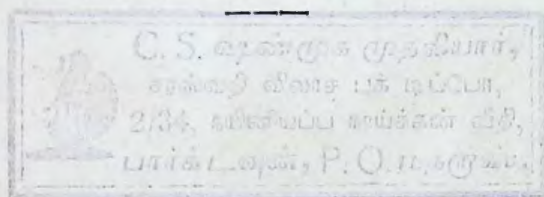 C. S. ஷண்முக முதலியார்,
சரஸ்வதி விலாச புக் டிப்போ,
2/34, நயினியப்ப நாய்க்கன் வீதி,
பார்க் டவுண், P. O.